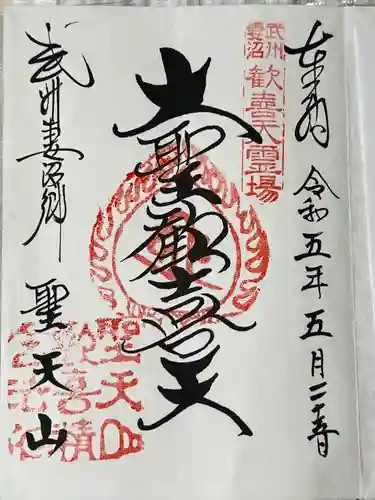 奉拝
令和五年五月二十一日
武州妻沼
歓喜天霊場
大聖歓喜天
武州妻沼郷
聖天山